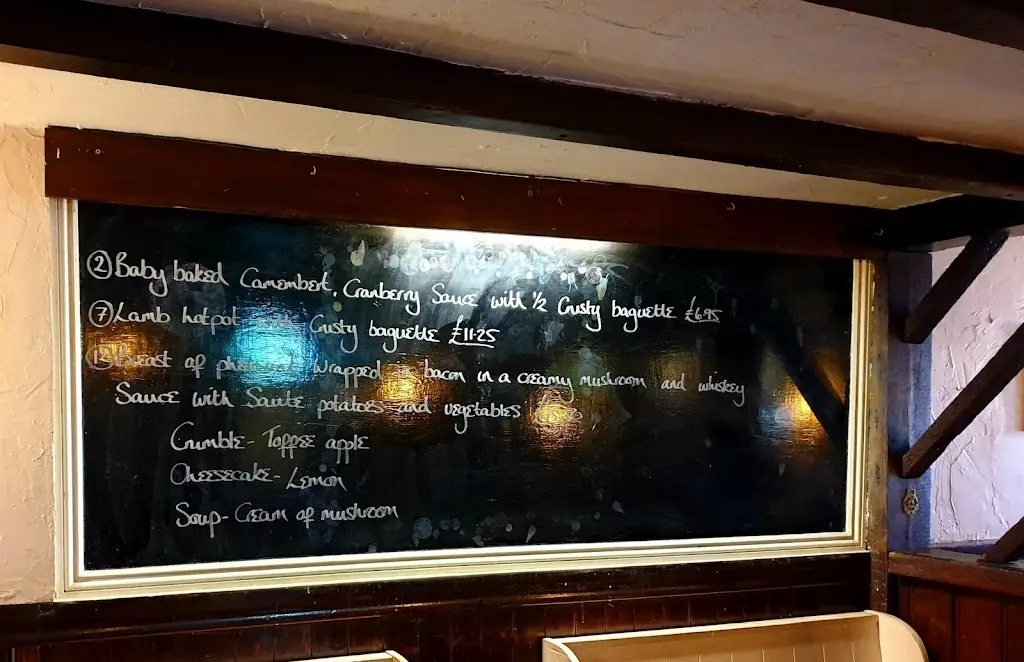 ② Baby baked Camembert, Cranberry Sauce with 1/2 Crusty baguette £6.95
⑦ Lamb hotpot with Crusty baguette £11.25
⑫ Breast of pheasant wrapped in bacon in a creamy mushroom and whiskey
Sauce with Saute potatoes and vegetables
Crumble - Toffee apple
Cheesecake - Lemon
Soup - Cream of mushroom